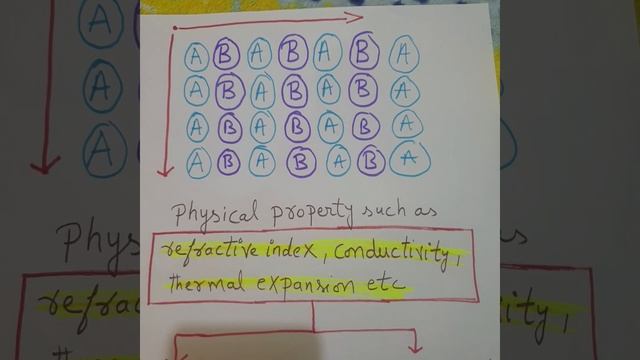 A B A B A B A
A B A B A B A
A B A B A B A
A B A B A B A
Physical property such as
refractive index, conductivity,
thermal expansion etc